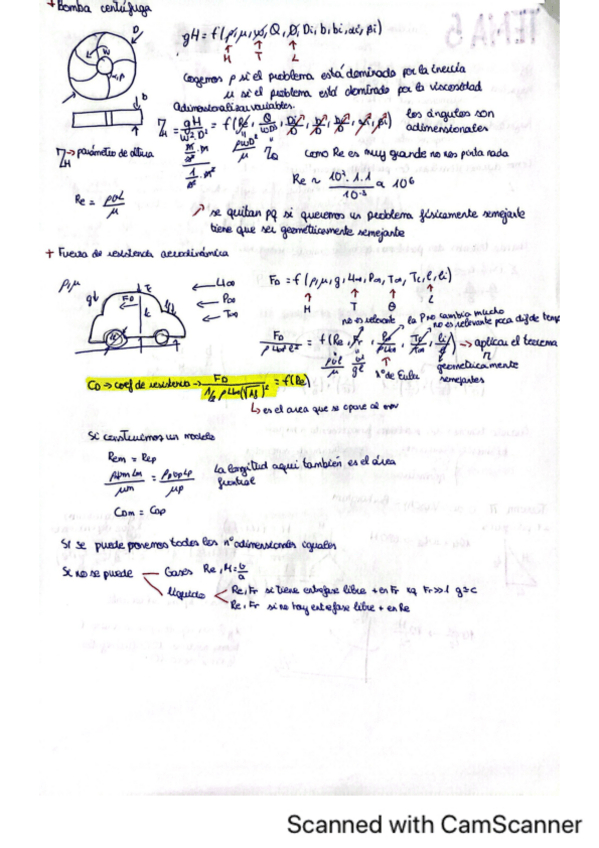 + Bomba centrífuga
gH = f(ρ, μ, ω, Q, D, Di, b, bi, αi, βi)
M T L
Cogemos ρ si el problema está dominado por la inercia
μ si el problema está dominado por la viscosidad
Adimensionalizar variables.
= gH / ω² D² = f(Re, Q / ωD³,
los ángulos son
adimensionales
→ parámetro de altura
Re = ρΩL / μ
ρωD² / μ
Como Re es muy grande no nos pinta nada
Re ~ 10³·1·1 / 10⁻³ ≈ 10⁶
↗ se quitan pq si queremos un problema físicamente semejante
tiene que ser geométricamente semejante
+ Fuerza de resistencia aerodinámica
ρ, μ
g↓
FD
U∞
P∞
T∞
FD = f(ρ, μ, g, U∞, P∞, T∞, Tc, l, li)
M T θ L
no es relevante la P no cambia mucho
no es relevante poca dif de temp
= f(Re, Fr,
→ aplicas el teorema
π
nº de Euler
geométricamente
semejantes
CD → coef de resistencia → FD / = f(Re)
↳ es el area que se opone al mov
Si construimos un modelo
Rem = Rep
= ρpUpLp / μp
La longitud aqui también es el área
frontal
CDm = CDp
Si se puede ponemos todos los nº adimensionales iguales
Si no se puede
Gases Re, M = U/a
Líquido
Re, Fr si tiene entrefase libre + en Fr
Re, Fr si no hay entrefase libre + en Re
Scanned with CamScanner